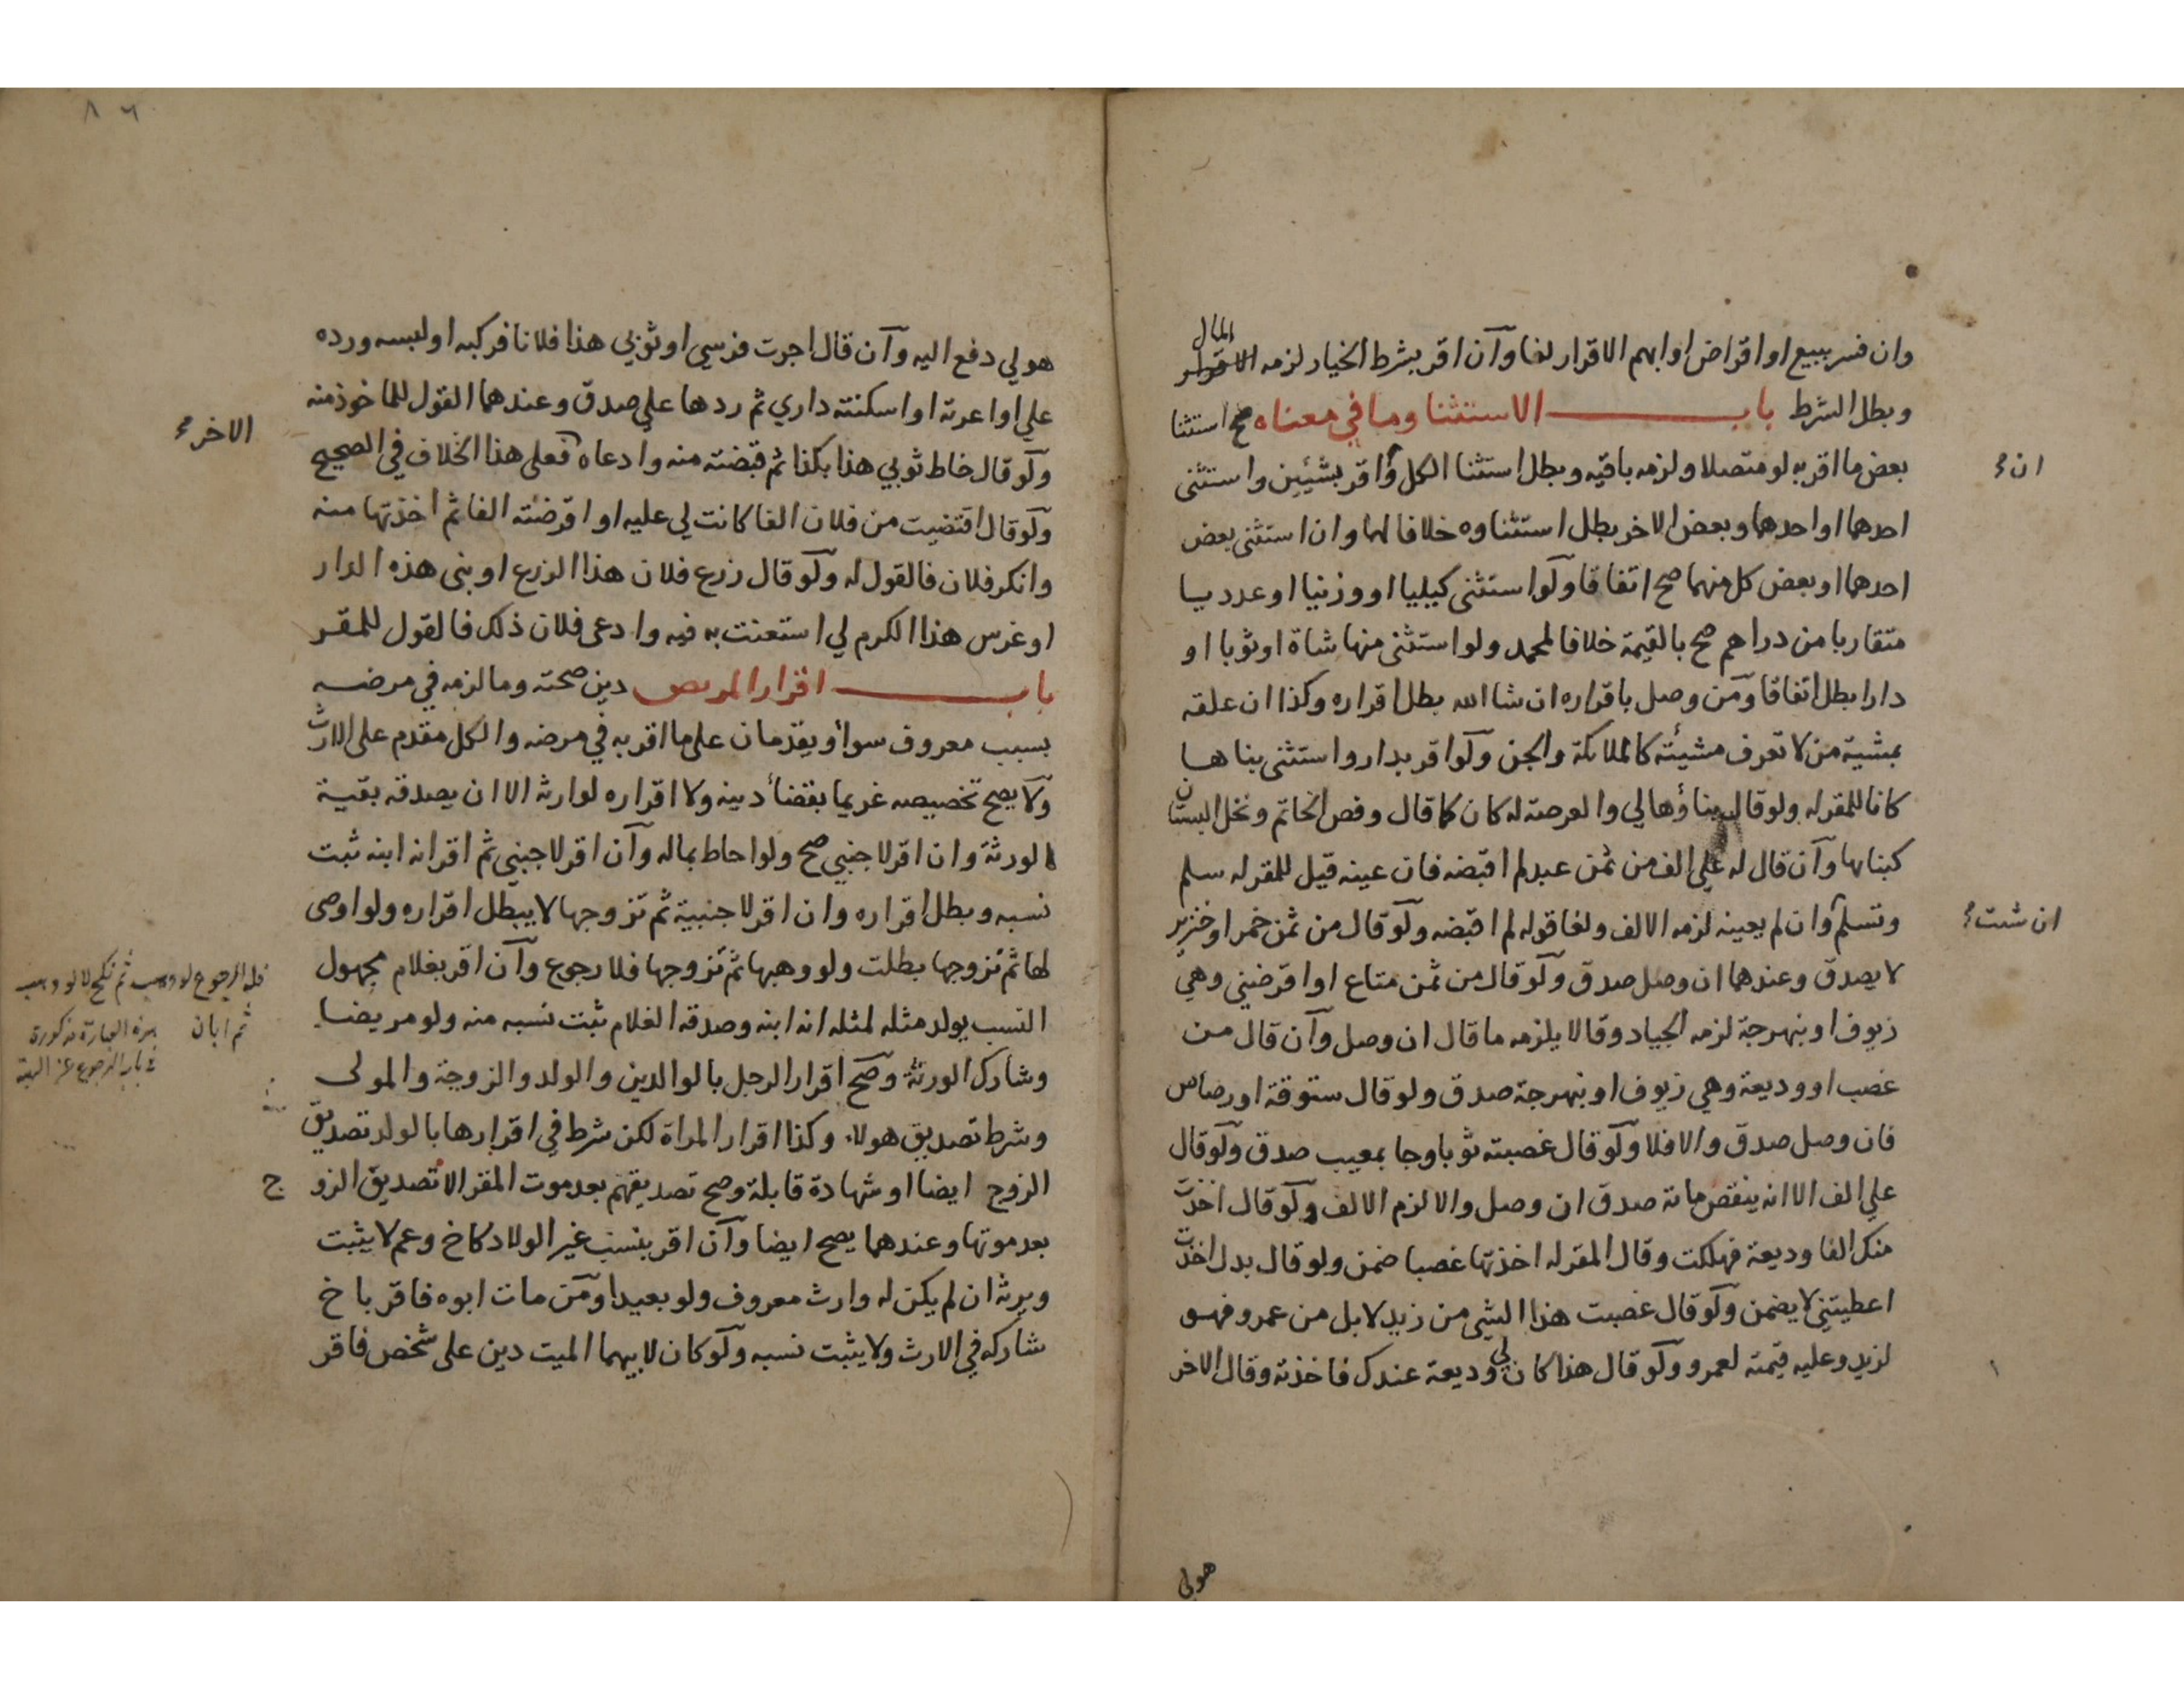 وان فسر ببيع او اقراض او ابهم الاقرار لغا وان اقر بشرط الخيار لزمه المال
وبطل الشرط باب الاستثنا وما في معناه صح استثنا
بعض ما اقر به لو متصلا ولزمه باقيه وبطل استثنا الكل و اقر بشيئين واستثنى
ان
احدهما او احدهما وبعض الاخر بطل استثناوه خلافا لهما وان استثنى بعض
احدهما او بعض كل منهما صح اتفاقا ولو استثنى كيليا او وزنيا او عدديا
متقاربا من دراهم صح بالقيمة خلافا لمحمد ولو استثنى منها شاة او ثوبا او
دارا بطل اتفاقا ومن وصل باقراره ان شا الله بطل اقراره وكذا ان علقه
بمشية من لا تعرف مشيئته كالملائكة والجن ولو اقر بدار واستثنى بناها
كانا للمقر له ولو قال بناؤها لي والعرصة له كان كما قال وفص الخاتم ونخل البستان
كبنائها وان قال له علي الف من ثمن عبد لم اقبضه فان عينه قيل للمقر له سلم
وتسلم وان لم يعينه لزمه الالف ولغا قوله لم اقبضه ولو قال من ثمن خمر او خنزير
ان شئت
لا يصدق وعندهما ان وصل صدق ولو قال من ثمن متاع او اقرضني وهي
زيوف او نبهرجة لزمه الجياد وقالا يلزمه ما قال ان وصل وان قال من
غصب او وديعة وهي زيوف او بنهرجة صدق ولو قال ستوقة او رصاص
فان وصل صدق والا فلا ولو قال غصبته ثوبا وجا بمعيب صدق ولو قال
علي الف الا انه ينقص مائة صدق ان وصل والا لزم الالف ولو قال اخذت
منك الفا وديعة فهلكت وقال المقر له اخذتها غصبا ضمن ولو قال بدل اخذت
اعطيتني لا يضمن ولو قال غصبت هذا الشي من زيد لا بل من عمرو فهو
لزيد وعليه قيمته لعمرو ولو قال هذا كان لي وديعة عندك فاخذته وقال الاخر
هو لي
٨٦
هو لي دفع اليه وان قال اجرت فرسي او ثوبي هذا فلانا فركبه او لبسه ورده
علي او اعرته او اسكنته داري ثم ردها علي صدق وعندهما القول للماخوذ منه
ولو قال خاط ثوبي هذا بكذا ثم قبضته منه وادعاه فعلى هذا الخلاف في الصحيح
الاخر
ولو قال اقتضيت من فلان الفا كانت لي عليه او اقرضته الفا ثم اخذتها منه
وانكر فلان فالقول له ولو قال زرع فلان هذا الزرع او بنى هذه الدار
او غرس هذا الكرم لي استعنت به فيه وادعى فلان ذلك فالقول للمقر
باب اقرار المريض دين صحته وما لزمه في مرضه
بسبب معروف سواء ويقدمان على ما اقر به في مرضه والكل مقدم على الارث
ولا يصح تخصيصه غريما بقضاء دينه ولا اقراره لوارثه الا ان يصدقه بقية
الورثة وان اقر لاجنبي صح ولو احاط بماله وان اقر لاجنبي ثم اقر انه ابنه ثبت
نسبه وبطل اقراره وان اقر لاجنبية ثم تزوجها لا يبطل اقراره ولو اوصى
لها ثم تزوجها بطلت ولو وهبها ثم تزوجها فلا رجوع وان اقر بغلام مجهول
النسب يولد مثله لمثله انه ابنه وصدقه الغلام ثبت نسبه منه ولو مريضا
وشارك الورثة وصح اقرار الرجل بالوالدين والولد والزوجة والمولى
وشرط تصديق هولاء وكذا اقرار المراة لكن شرط في اقرارها بالولد تصديق
الزوج ايضا او شهادة قابلة وصح تصديقهم بعد موت المقر الا تصديق الزوج
بعد موتها وعندهما يصح ايضا وان اقر بنسب غير الولاد كاخ وعم لا يثبت
ويرثه ان لم يكن له وارث معروف ولو بعيدا ومن مات ابوه فاقر باخ
شاركه في الارث ولا يثبت نسبه ولو كان لابيهما الميت دين على شخص فاقر
فله الرجوع لو وهب ثم نكح لا لو وهب
ثم ابان هذه العبارة مذكورة
في باب الرجوع عن الهبة